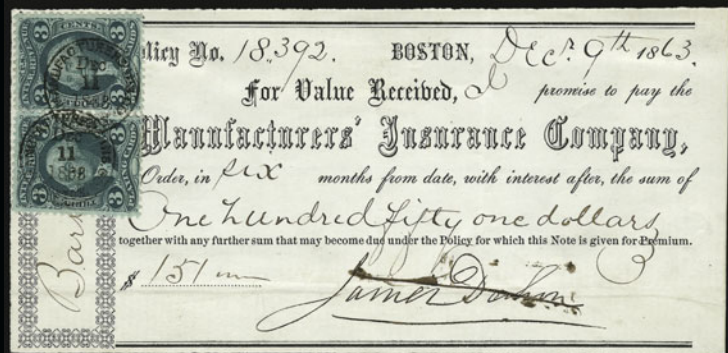 Policy No. 18.392. BOSTON, Decr. 9th 1863.
For Value Received, I promise to pay the
Manufacturers' Insurance Company,
Order, in six months from date, with interest after, the sum of
One hundred fifty one dollars
together with any further sum that may become due under the Policy for which this Note is given for Premium.
$ 151
James
3 CENTS. 3
Dec
11
3 3
11
Bar